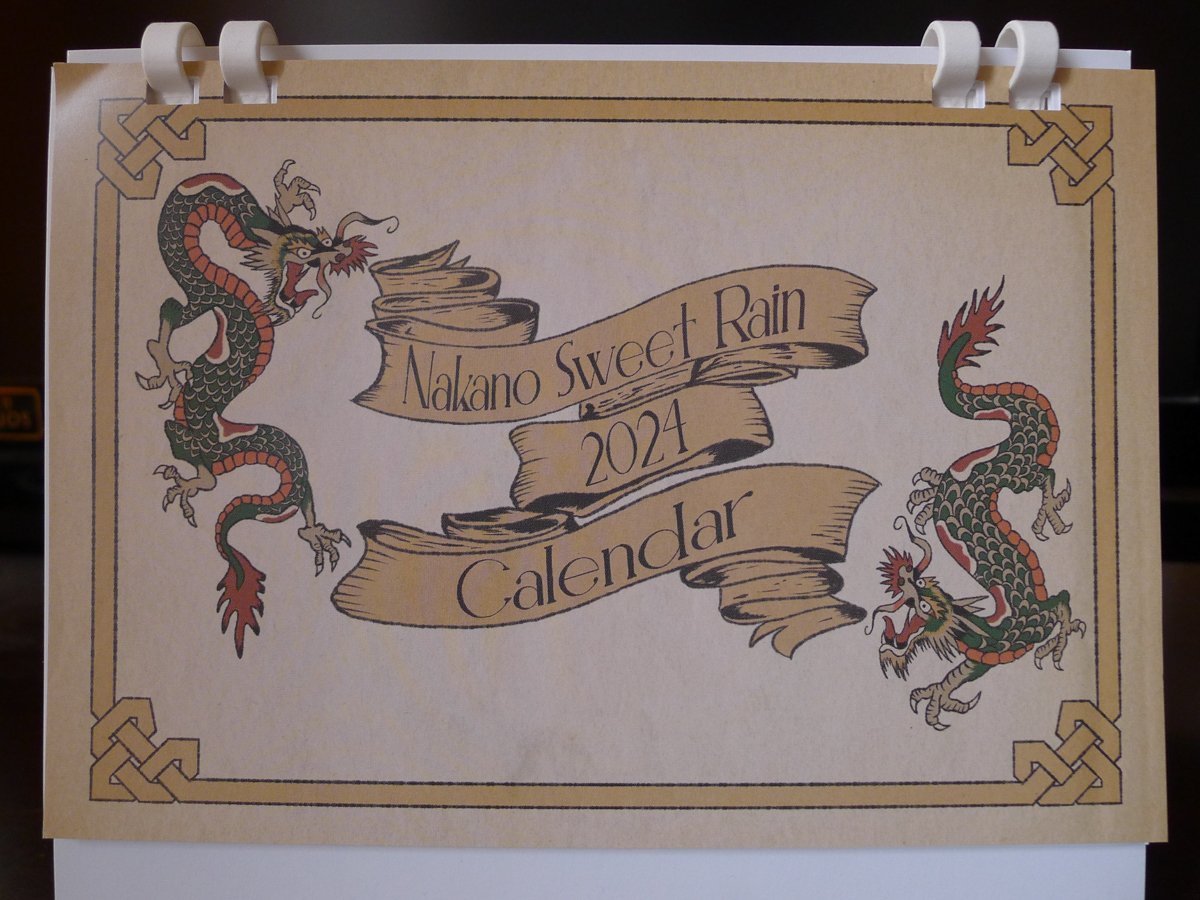 Nakano Sweet Rain
2024
Calendar